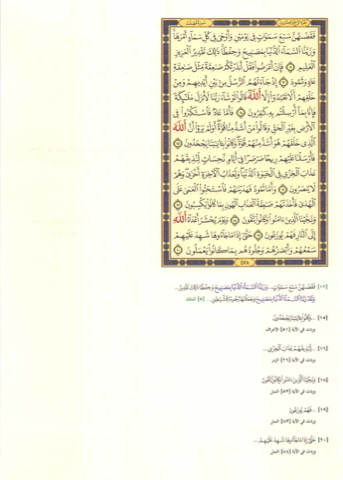 فَقَضَىٰهُنَّ سَبْعَ سَمَٰوَاتٍ فِي يَوْمَيْنِ وَأَوْحَىٰ فِي كُلِّ سَمَآءٍ أَمْرَهَا
وَزَيَّنَّا ٱلسَّمَآءَ ٱلدُّنْيَا بِمَصَٰبِيحَ وَحِفْظًا ذَٰلِكَ تَقْدِيرُ ٱلْعَزِيزِ
ٱلْعَلِيمِ ١٢ فَإِنْ أَعْرَضُوا۟ فَقُلْ أَنذَرْتُكُمْ صَٰعِقَةً مِّثْلَ صَٰعِقَةِ
عَادٍ وَثَمُودَ ١٣ إِذْ جَآءَتْهُمُ ٱلرُّسُلُ مِنۢ بَيْنِ أَيْدِيهِمْ وَمِنْ
خَلْفِهِمْ أَلَّا تَعْبُدُوٓا۟ إِلَّا ٱللَّهَ قَالُوا۟ لَوْ شَآءَ رَبُّنَا لَأَنزَلَ مَلَٰٓئِكَةً
فَإِنَّا بِمَآ أُرْسِلْتُم بِهِۦ كَٰفِرُونَ ١٤ فَأَمَّا عَادٌ فَٱسْتَكْبَرُوا۟ فِي
ٱلْأَرْضِ بِغَيْرِ ٱلْحَقِّ وَقَالُوا۟ مَنْ أَشَدُّ مِنَّا قُوَّةً أَوَلَمْ يَرَوْا۟ أَنَّ ٱللَّهَ
ٱلَّذِي خَلَقَهُمْ هُوَ أَشَدُّ مِنْهُمْ قُوَّةً وَكَانُوا۟ بِـَٔايَٰتِنَا يَجْحَدُونَ ١٥
فَأَرْسَلْنَا عَلَيْهِمْ رِيحًا صَرْصَرًا فِيٓ أَيَّامٍ نَّحِسَاتٍ لِّنُذِيقَهُمْ
عَذَابَ ٱلْخِزْيِ فِي ٱلْحَيَوٰةِ ٱلدُّنْيَا وَلَعَذَابُ ٱلْأَخِرَةِ أَخْزَىٰ وَهُمْ
لَا يُنصَرُونَ ١٦ وَأَمَّا ثَمُودُ فَهَدَيْنَٰهُمْ فَٱسْتَحَبُّوا۟ ٱلْعَمَىٰ عَلَى
ٱلْهُدَىٰ فَأَخَذَتْهُمْ صَٰعِقَةُ ٱلْعَذَابِ ٱلْهُونِ بِمَا كَانُوا۟ يَكْسِبُونَ ١٧
وَنَجَّيْنَا ٱلَّذِينَ ءَامَنُوا۟ وَكَانُوا۟ يَتَّقُونَ ١٨ وَيَوْمَ يُحْشَرُ أَعْدَآءُ ٱللَّهِ
إِلَى ٱلنَّارِ فَهُمْ يُوزَعُونَ ١٩ حَتَّىٰٓ إِذَا مَا جَآءُوهَا شَهِدَ عَلَيْهِمْ
سَمْعُهُمْ وَأَبْصَٰرُهُمْ وَجُلُودُهُم بِمَا كَانُوا۟ يَعْمَلُونَ ٢٠
٤٧٨
[١٢] فَقَضَىٰهُنَّ سَبْعَ سَمَٰوَاتٍ ... وَزَيَّنَّا ٱلسَّمَآءَ ٱلدُّنْيَا بِمَصَٰبِيحَ وَحِفْظًا ذَٰلِكَ تَقْدِيرُ ...
وَلَقَدْ زَيَّنَّا ٱلسَّمَآءَ ٱلدُّنْيَا بِمَصَٰبِيحَ وَجَعَلْنَٰهَا رُجُومًا لِّلشَّيَٰطِينِ ... [٥] الملك
[١٥] ... وَكَانُوا۟ بِـَٔايَٰتِنَا يَجْحَدُونَ
وردت في الآية [٥١] الأعراف
[١٦] ... لِّنُذِيقَهُمْ عَذَابَ ٱلْخِزْيِ ...
وردت في الآية [٢٦] الزمر
[١٨] وَنَجَّيْنَا ٱلَّذِينَ ءَامَنُوا۟ وَكَانُوا۟ يَتَّقُونَ
وردت في الآية [٥٣] النمل
[١٩] ... فَهُمْ يُوزَعُونَ
وردت في الآية [٨٣] النمل
[٢٠] حَتَّىٰٓ إِذَا مَا جَآءُوهَا شَهِدَ عَلَيْهِمْ ...
وردت في الآية [٨٤] النمل